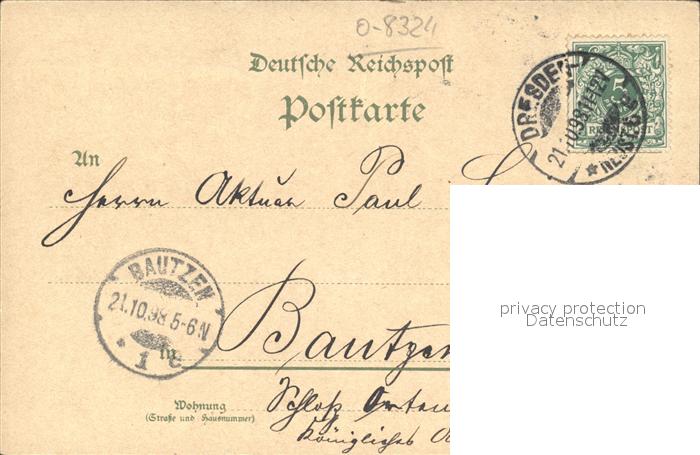 0-8324
Deutsche Reichspost
Postkarte
DRESDEN-
21.10.98.11-12V
NEUSTADT
5
REICHSPOST
An
Herrn Aktuar Paul
BAUTZEN
21.10.98 5-6N
1 c
in Bautzen
privacy protection
Datenschutz
Wohnung
(Straße und Hausnummer)
Schloß Orten
Königliches